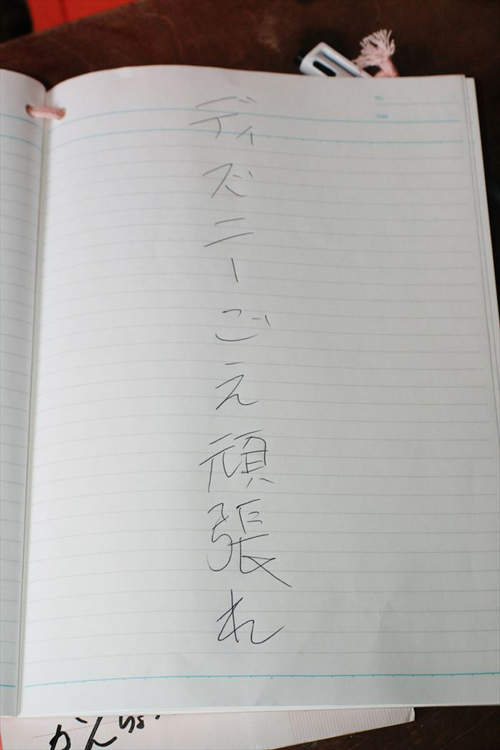 ディズニーごえ頑張れ
がんば